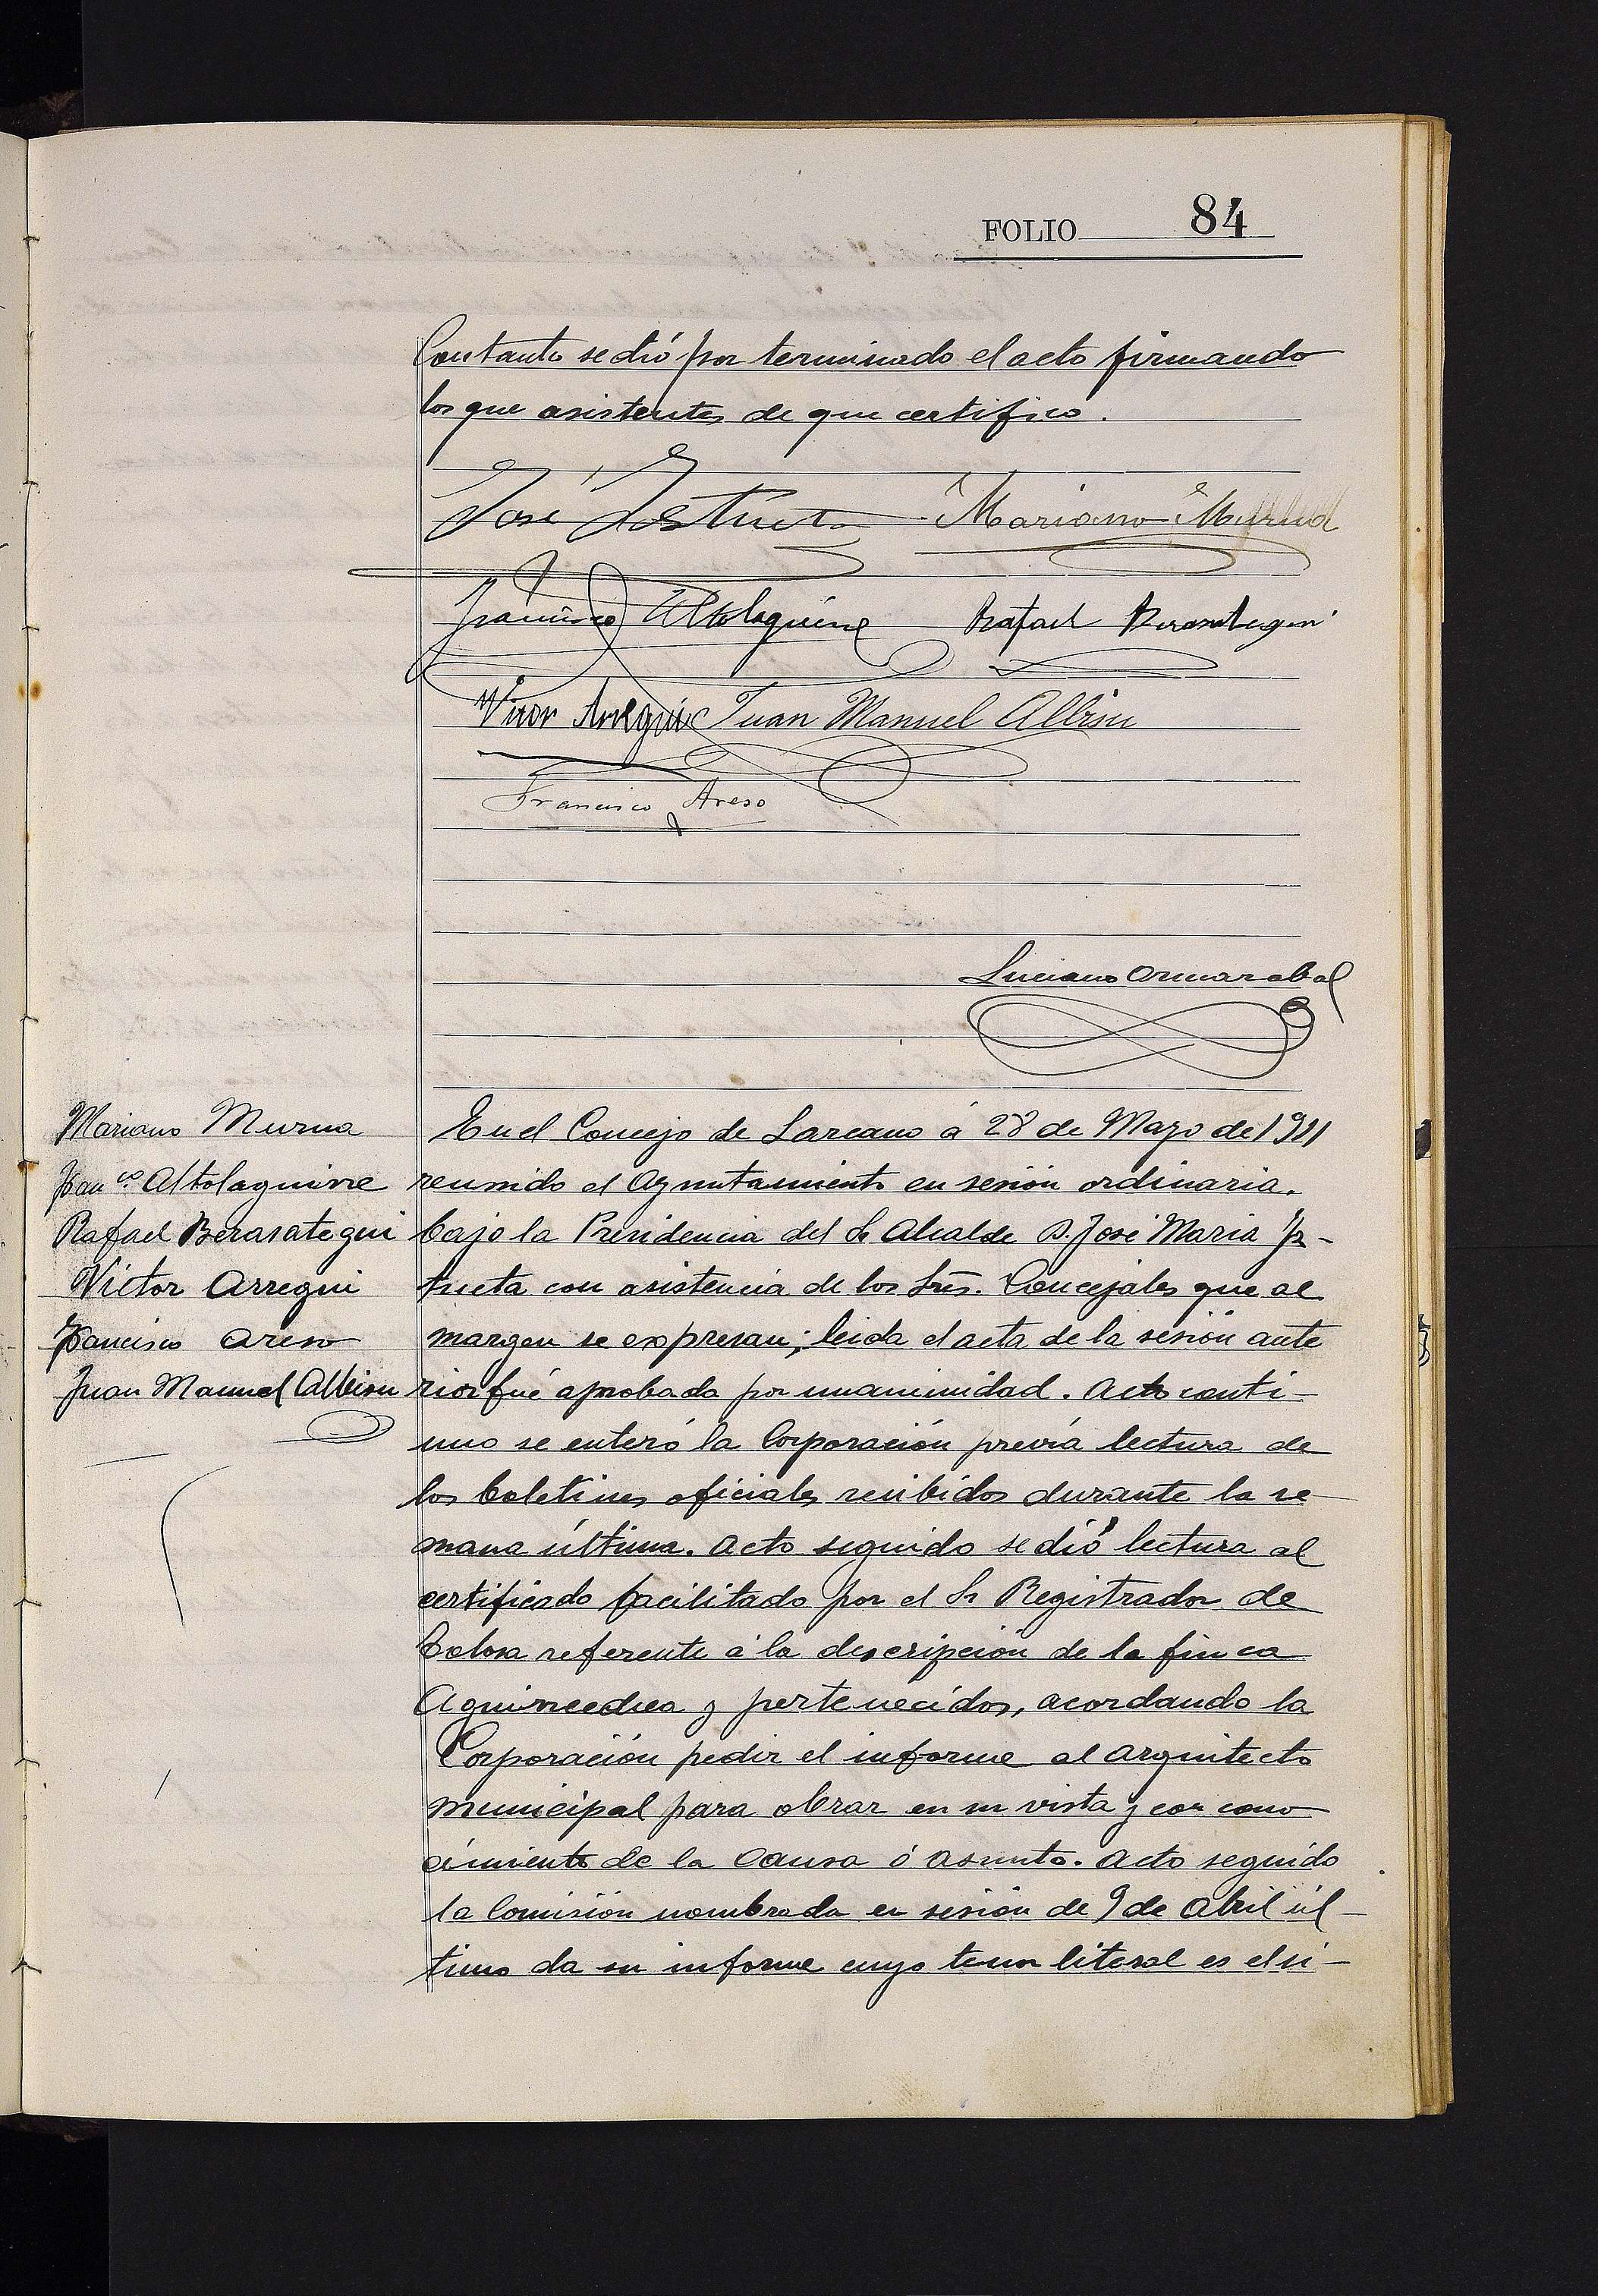 FOLIO 84
Contanto se dió por terminado el acto firmando
los que asistentes de que certifico.
José Iztueta Mariano
Francisco Altolaguirre Rafael Berasategui
Victor Arregui Juan Manuel Albisu
Francisco Areso
Luciano Armarabal
Mariano Murua
Fran.co Altolaguirre
Rafael Berasategui
Victor Arregui
Francisco Areso
Juan Manuel Albisu
En el Concejo de Lazcano á 28 de Mayo de 1911
reunido el Ayuntamiento en sesión ordinaria.
bajo la Presidencia del Sr Alcalde D. José Maria Iz-
tueta con asistencia de los Srs. Concejales que al
margen se expresan; leida el acta de la sesión ante
rior fué aprobada por unanimidad. Acto conti-
nuo se enteró la Corporación previa lectura de
los boletines oficiales recibidos durante la se
mana última. Acto seguido se dió lectura al
certificado facilitado por el Sr Registrador de
Tolosa referente á la descripción de la finca
y pertenecidos, acordando la
Corporación pedir el informe al arquitecto
municipal para obrar en su vista y con cono
cimiento de la causa ó asunto. Acto seguido
la Comisión nombrada en sesión de 9 de Abril úl-
timo da su informe cuyo tenor literal es el si-